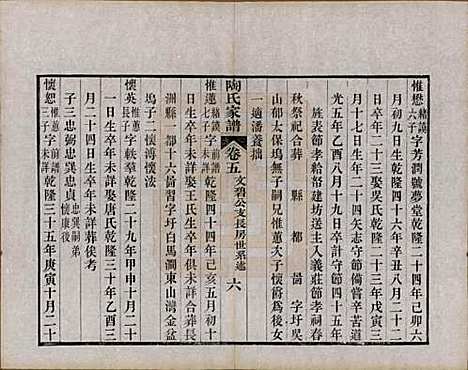 惟懋 緒護六子 字芳潤號夢堂乾隆二十四年己卯六
月初九日生乾隆四十六年辛丑八月二十二
日卒年二十三娶吳氏乾隆二十三年戊寅三
月十七日生年二十四矢志守節備嘗辛苦道
光五年乙酉八月十九日卒計守節四十五年
旌表節孝給帑建坊送主入義莊節孝祠春
秋祭祀合葬 縣 都 啚 字圩吳
山郁太保塢無子嗣兄惟蕙次子懷爵為後女
一適潘養拙
陶氏家譜 卷五 文碧公支長房世系述 六
惟蓮 緒護七子 字 前譜 乾隆四十四年己亥五月初十
日生卒年未詳娶王氏生卒年未詳合葬長
洲縣一都十六啚習字圩白馬澗東山灣金盆
塢子二懷溥懷法
懷英 惟蕙長子 字軼羣乾隆二十九年甲申十月二十
一日生卒年未詳娶唐氏乾隆三十年乙酉三
月二十四日生卒年未詳葬俟考
子三忠弼忠巽忠貞 忠巽嗣弟懷康後
懷恕 惟蕙三子 字未詳 乾隆三十五年庚寅十月二十